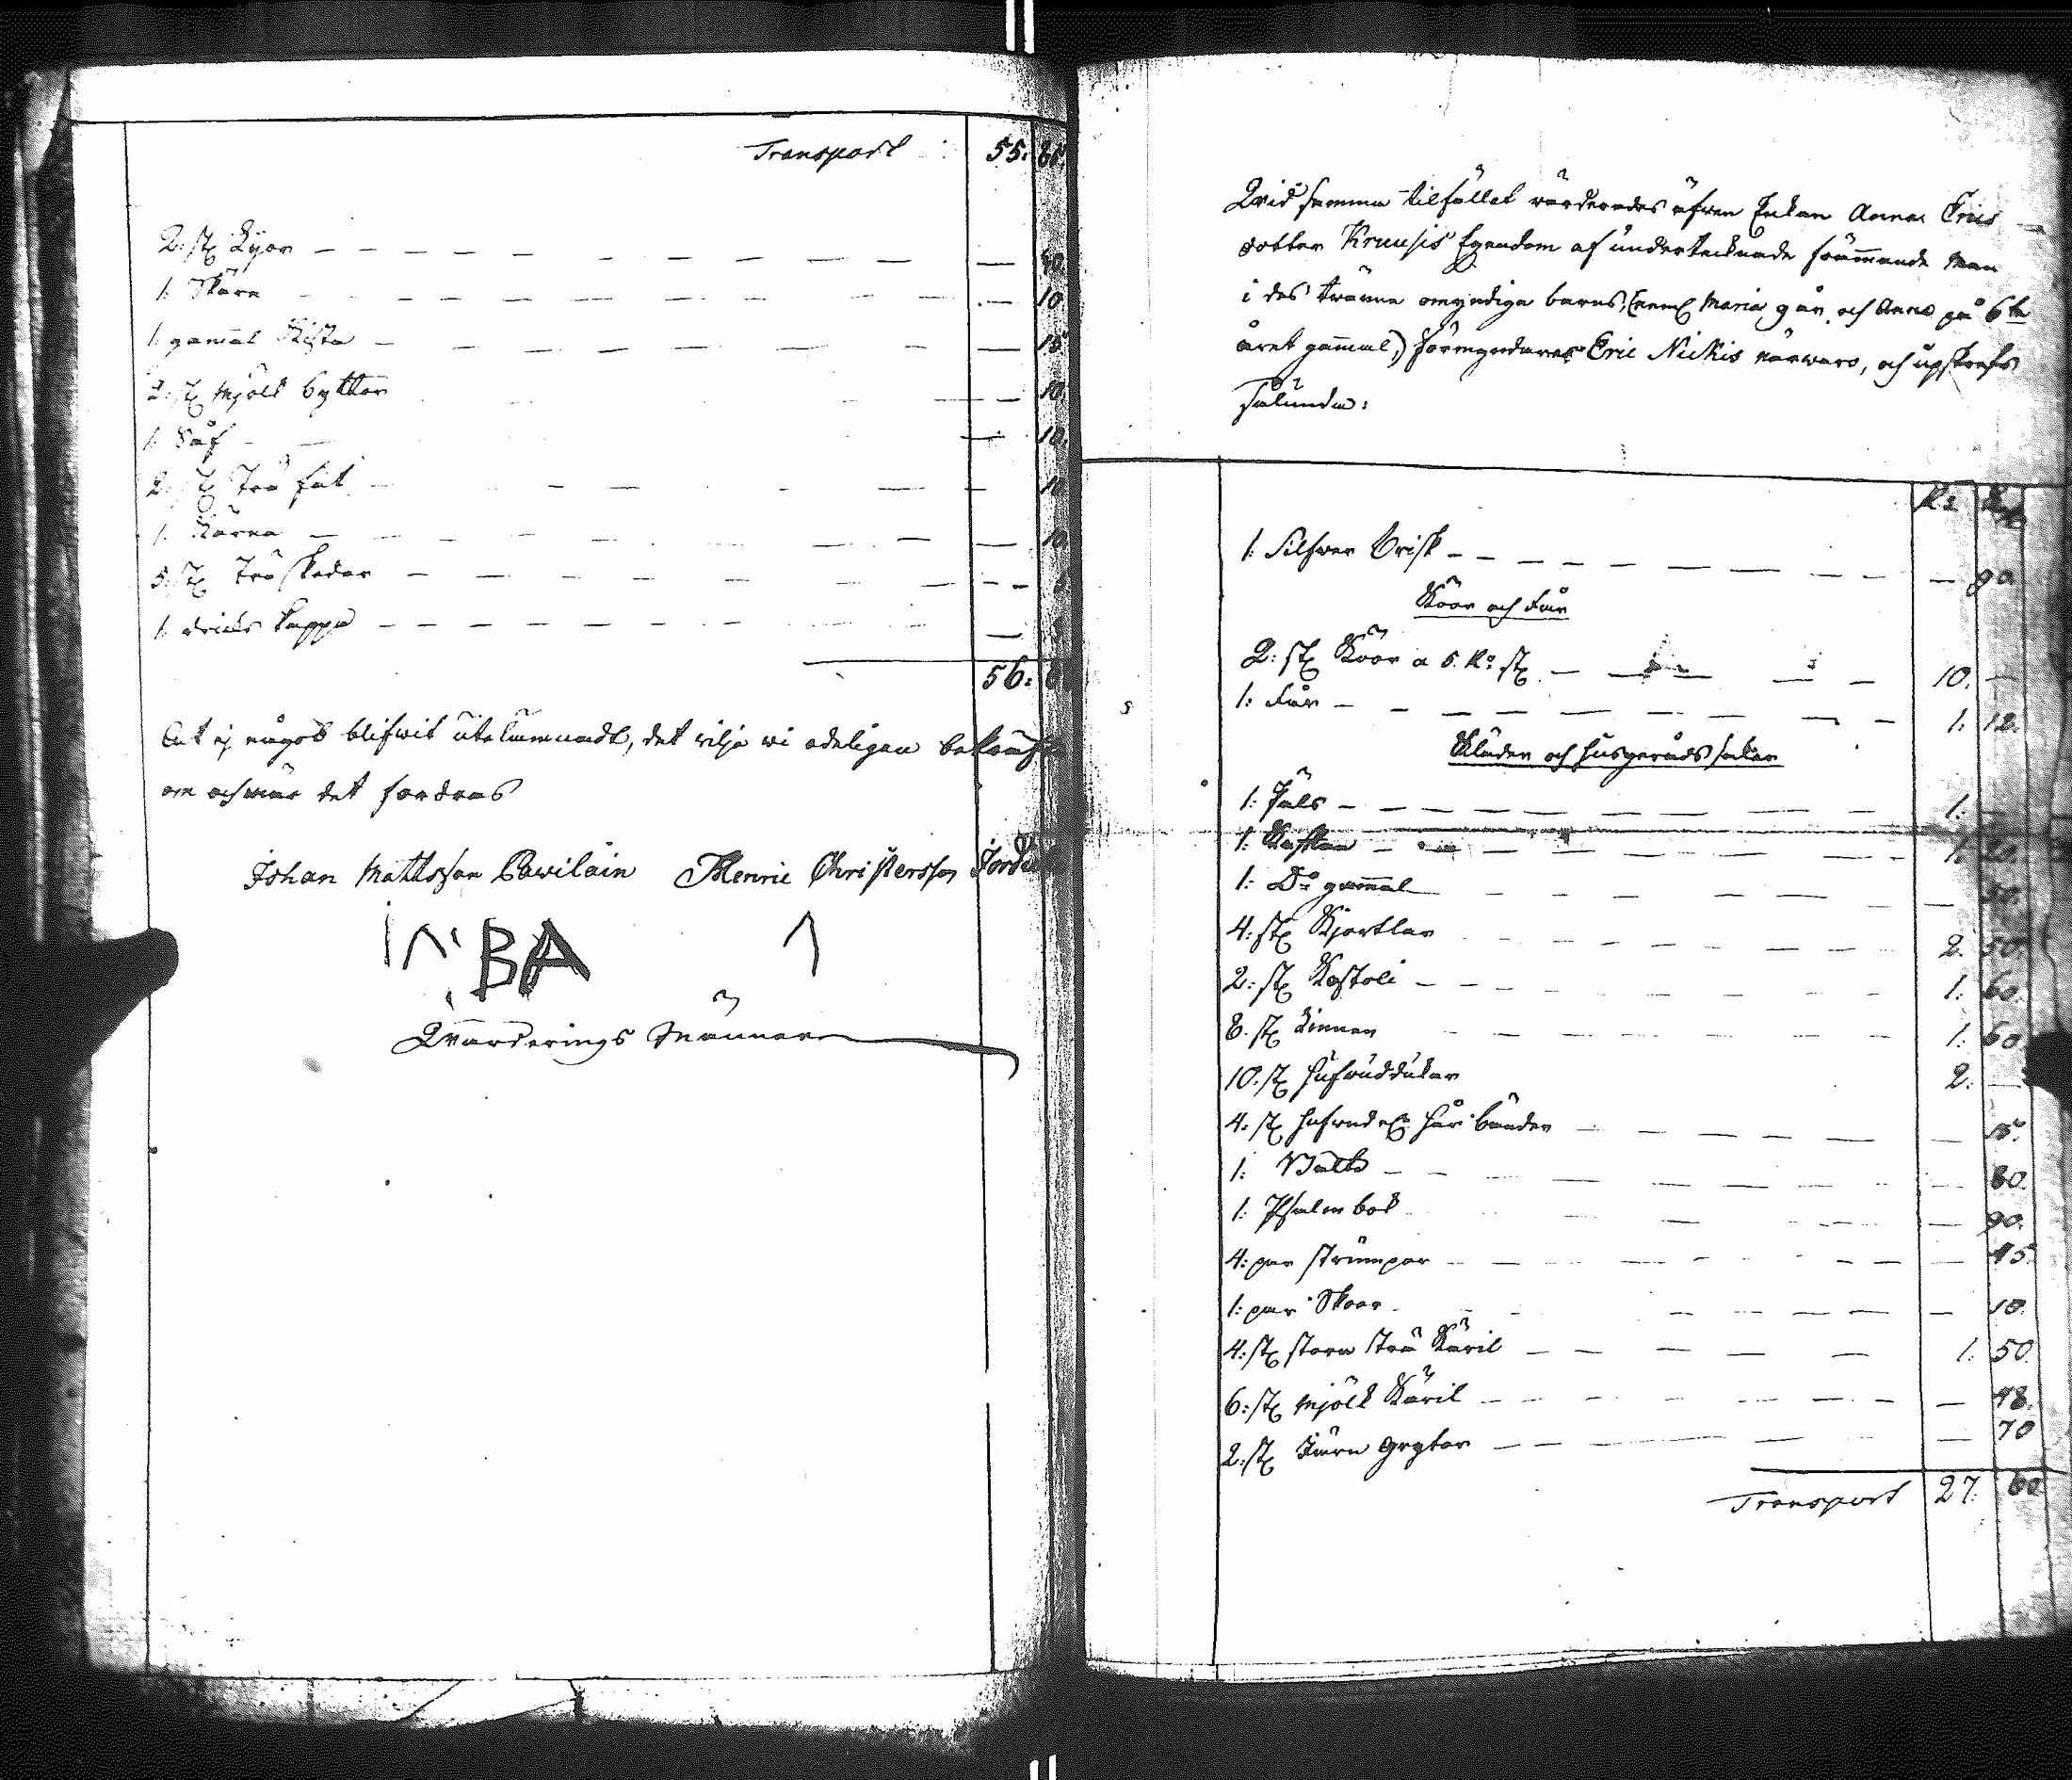 Transport 55. 85.
2: st Lijor — 40.
1. Skära — 10.
1. gammal Kista — 15.
2. st Mjölk byttor — 10.
1. Såf — 10.
2. st Trä fat — 10
1. Kärna — 10
5. st Trä skedar —
1. dricks kappa —
56.
At ej något blifwit utelämnadt, det vilja wi edeligen bekräfta
om och när det fordras
Johan Mattsson Pawilain Henric Christersson
BA
Qwärderings Männer
Qwid samma tilfället värderades äfwen Enkan Anna Erics
dotter Kruusis Egendom af undertecknade främmande Män
i des tvänne omyndiga barns, (neml Maria 9 år, och Anna på 6te
året gammal,) förmyndares Eric Nickis närwaro, och upskrefs
sålunda:
R:
1: Silfwer Brisk — 90
Koor och Får
2: st Koor a 5. R: st — 10. —
1: Får — 1. 12.
Kläder och husgeråds saker
1: Päls — 1. —
1: Kaftan — 1. 20.
1: D:o gammal — 50.
4: st Kjortlar 2. 50.
2: st Kastoli — 1. 60.
8. st Linnen — 1. 60
10. st hufwuddukar 2. —
4: st hufwud eller hår bånder — 15.
1: Bälte — 80.
1: Psalm bok — 90.
4: par strumpor — 45
1: par Skoor — 10.
4: st stora trä Käril — 1. 50.
6: st Mjölk Käril — 48.
2: st Järn Grytor — 70
Transport 27. 60